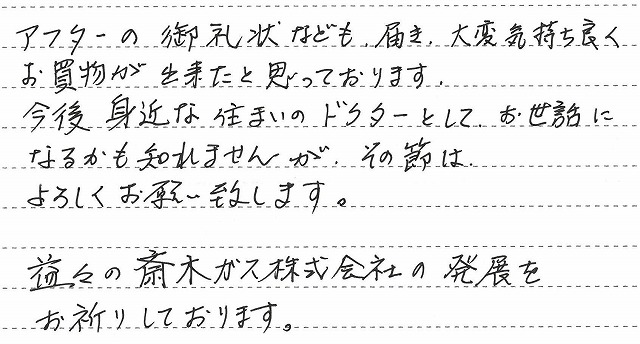 アフターの御礼状なども、届き、大変気持ち良く
お買物が出来たと思っております。
今後身近な住まいのドクターとして、お世話に
なるかも知れませんが、その節は、
よろしくお願い致します。
益々の斎木ガス株式会社の発展を
お祈りしております。